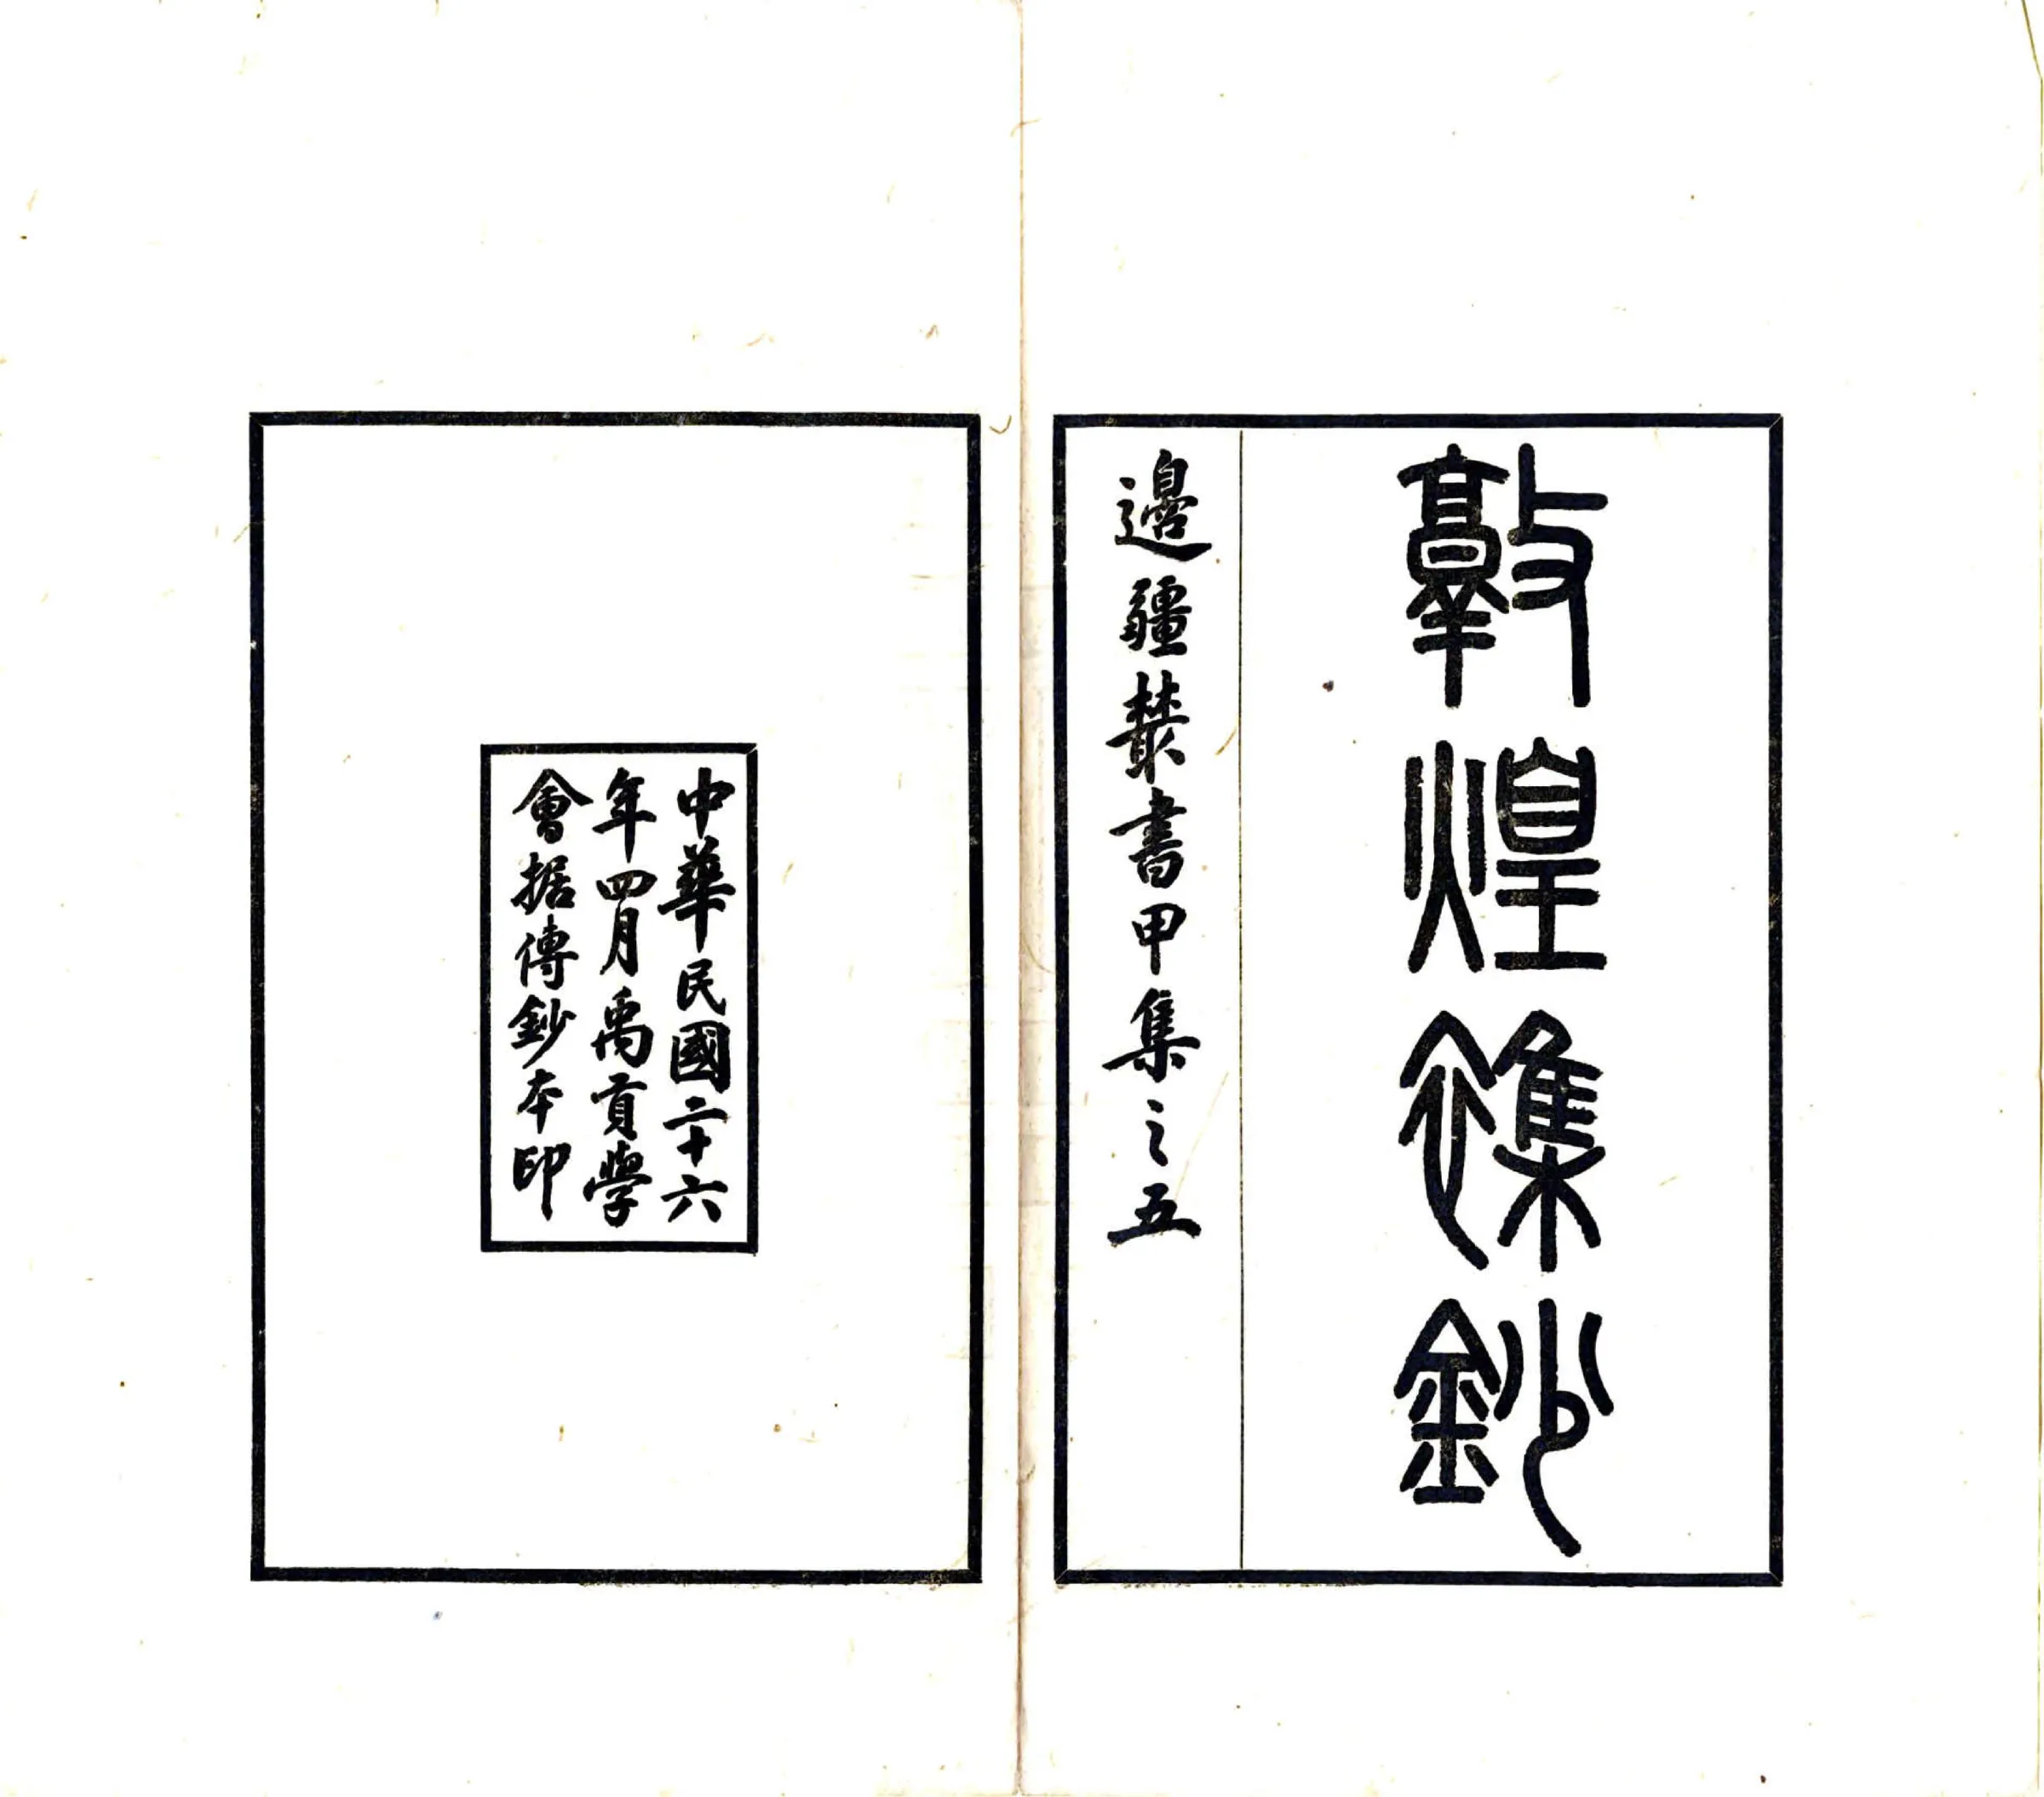 敦煌雜鈔
邊疆叢書甲集之五
中華民國二十六
年四月禹貢學
會據傳鈔本印